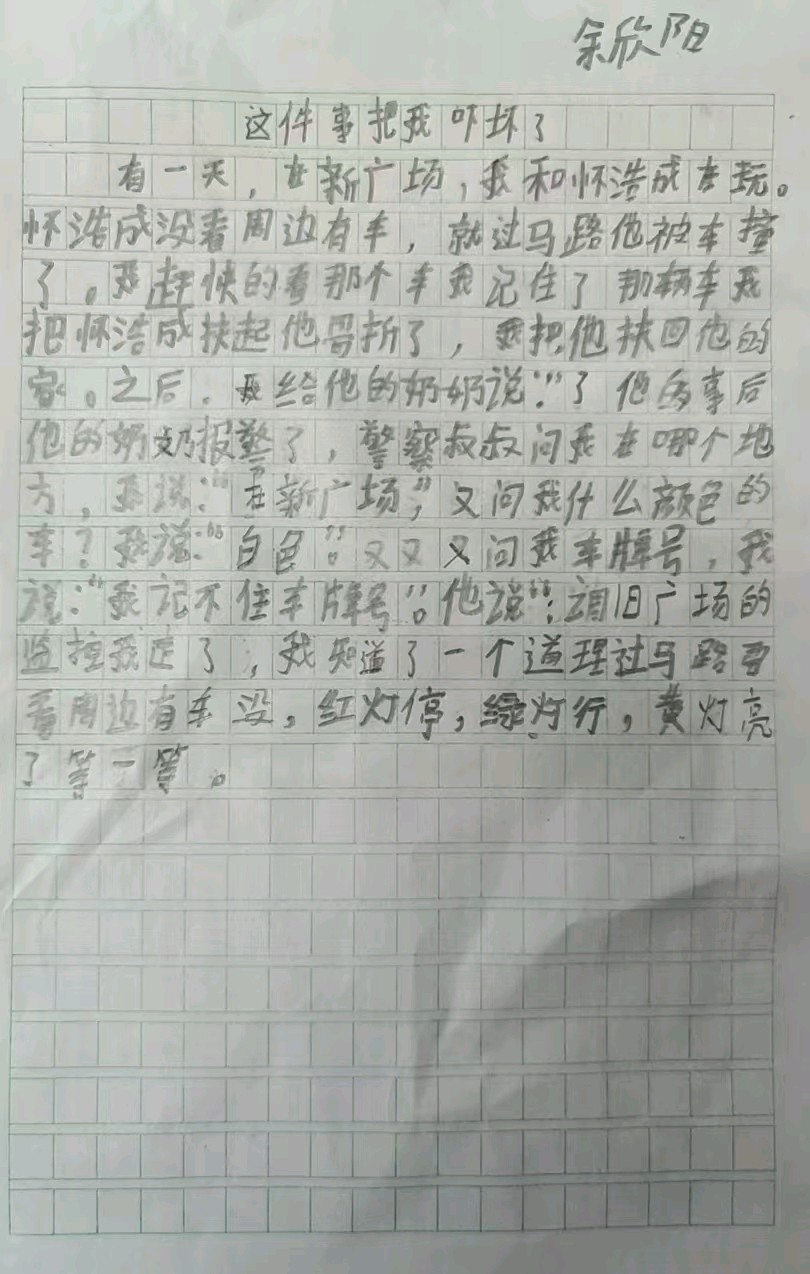 余欣阳
这件事把我吓坏了
有一天，在新广场，我和怀浩成在玩。
怀浩成没看周边有车，就过马路他被车撞
了。我赶快的看那个车我记住了那辆车我
把怀浩成扶起他骨折了，我把他扶回他的
家。之后．我给他的奶奶说：“”了他的事后
他的奶奶报警了，警察叔叔问我在哪个地
方，我说：“在新广场，”又问我什么颜色的
车？我说：“白色”。又又又问我车牌号，我
说：“我记不住车牌号”。他说“：调旧广场的
监控我走了，我知道了一个道理过马路要
看周边有车没，红灯停，绿灯行，黄灯亮
了等一等。